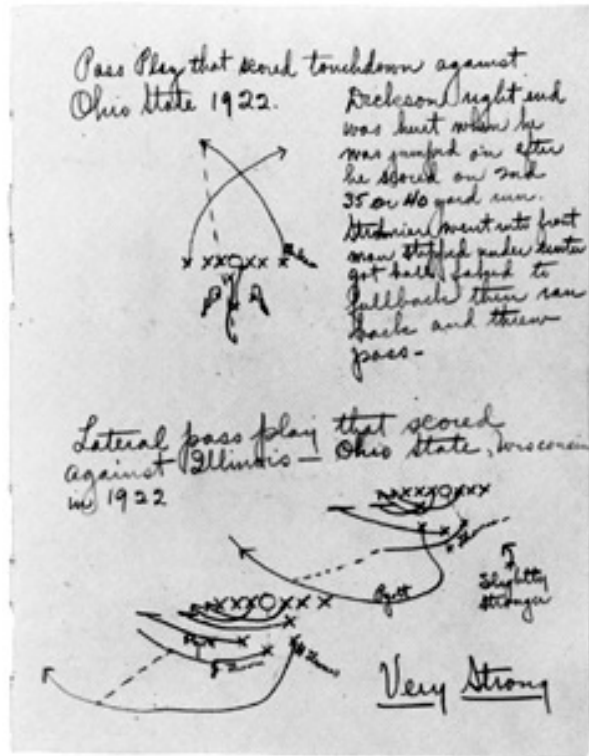 Pass Play that scored touchdown against
Ohio State 1922.
Dickson right end
was hurt when he
was jumped on after
he scored on 2nd
35 or 40 yard run.
went into front
man stepped under center
got ball faked to
fullback then ran
back and threw
pass-
Lateral pass play that scored
against Illinois — Ohio State, Wisconsin
in 1922
Pyott
Slightly
stronger
Very Strong